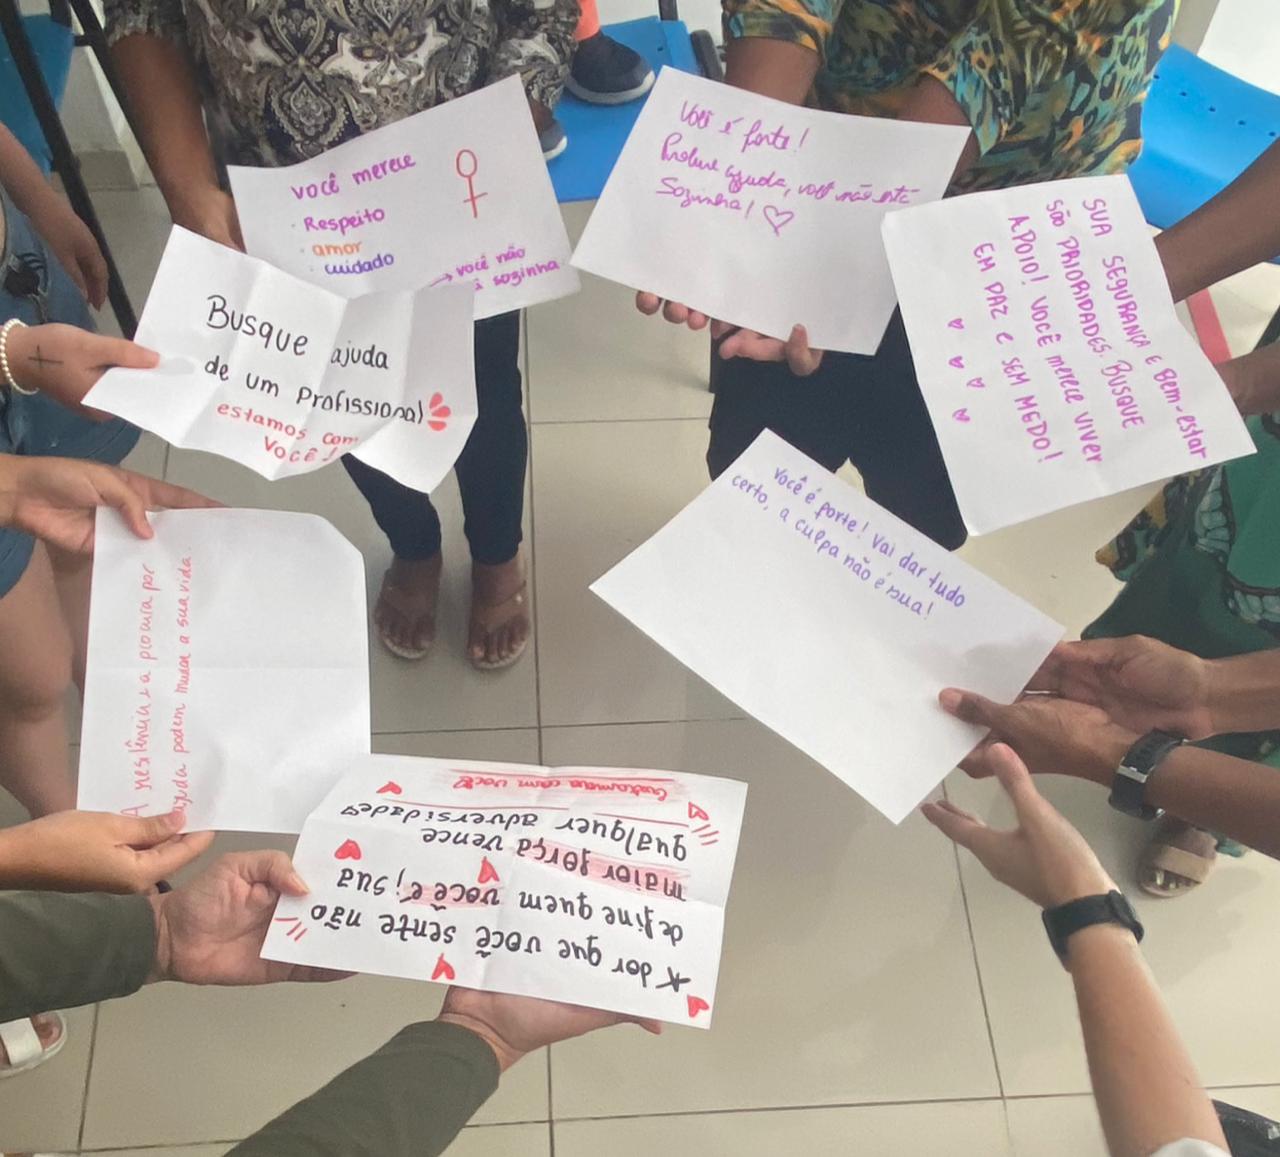 você merece
· Respeito
· amor
· cuidado
→ você não
sozinha
Você é forte!
Procure ajuda, você não está
Sozinha! ♡
SUA SEGURANÇA E BEM-estar
são PRIORIDADES. BUSQUE
APOIO! VOCÊ merece VIVER
EM PAZ E SEM MEDO!
Busque ajuda
de um profissional
estamos com
Você!
você é forte! Vai dar tudo
certo, a culpa não é sua!
A resilência e a procura por
ajuda podem mudar a sua vida.
A dor que você sente não
define quem você é; sua
maior força vence
qualquer adversidade
Estamos com você